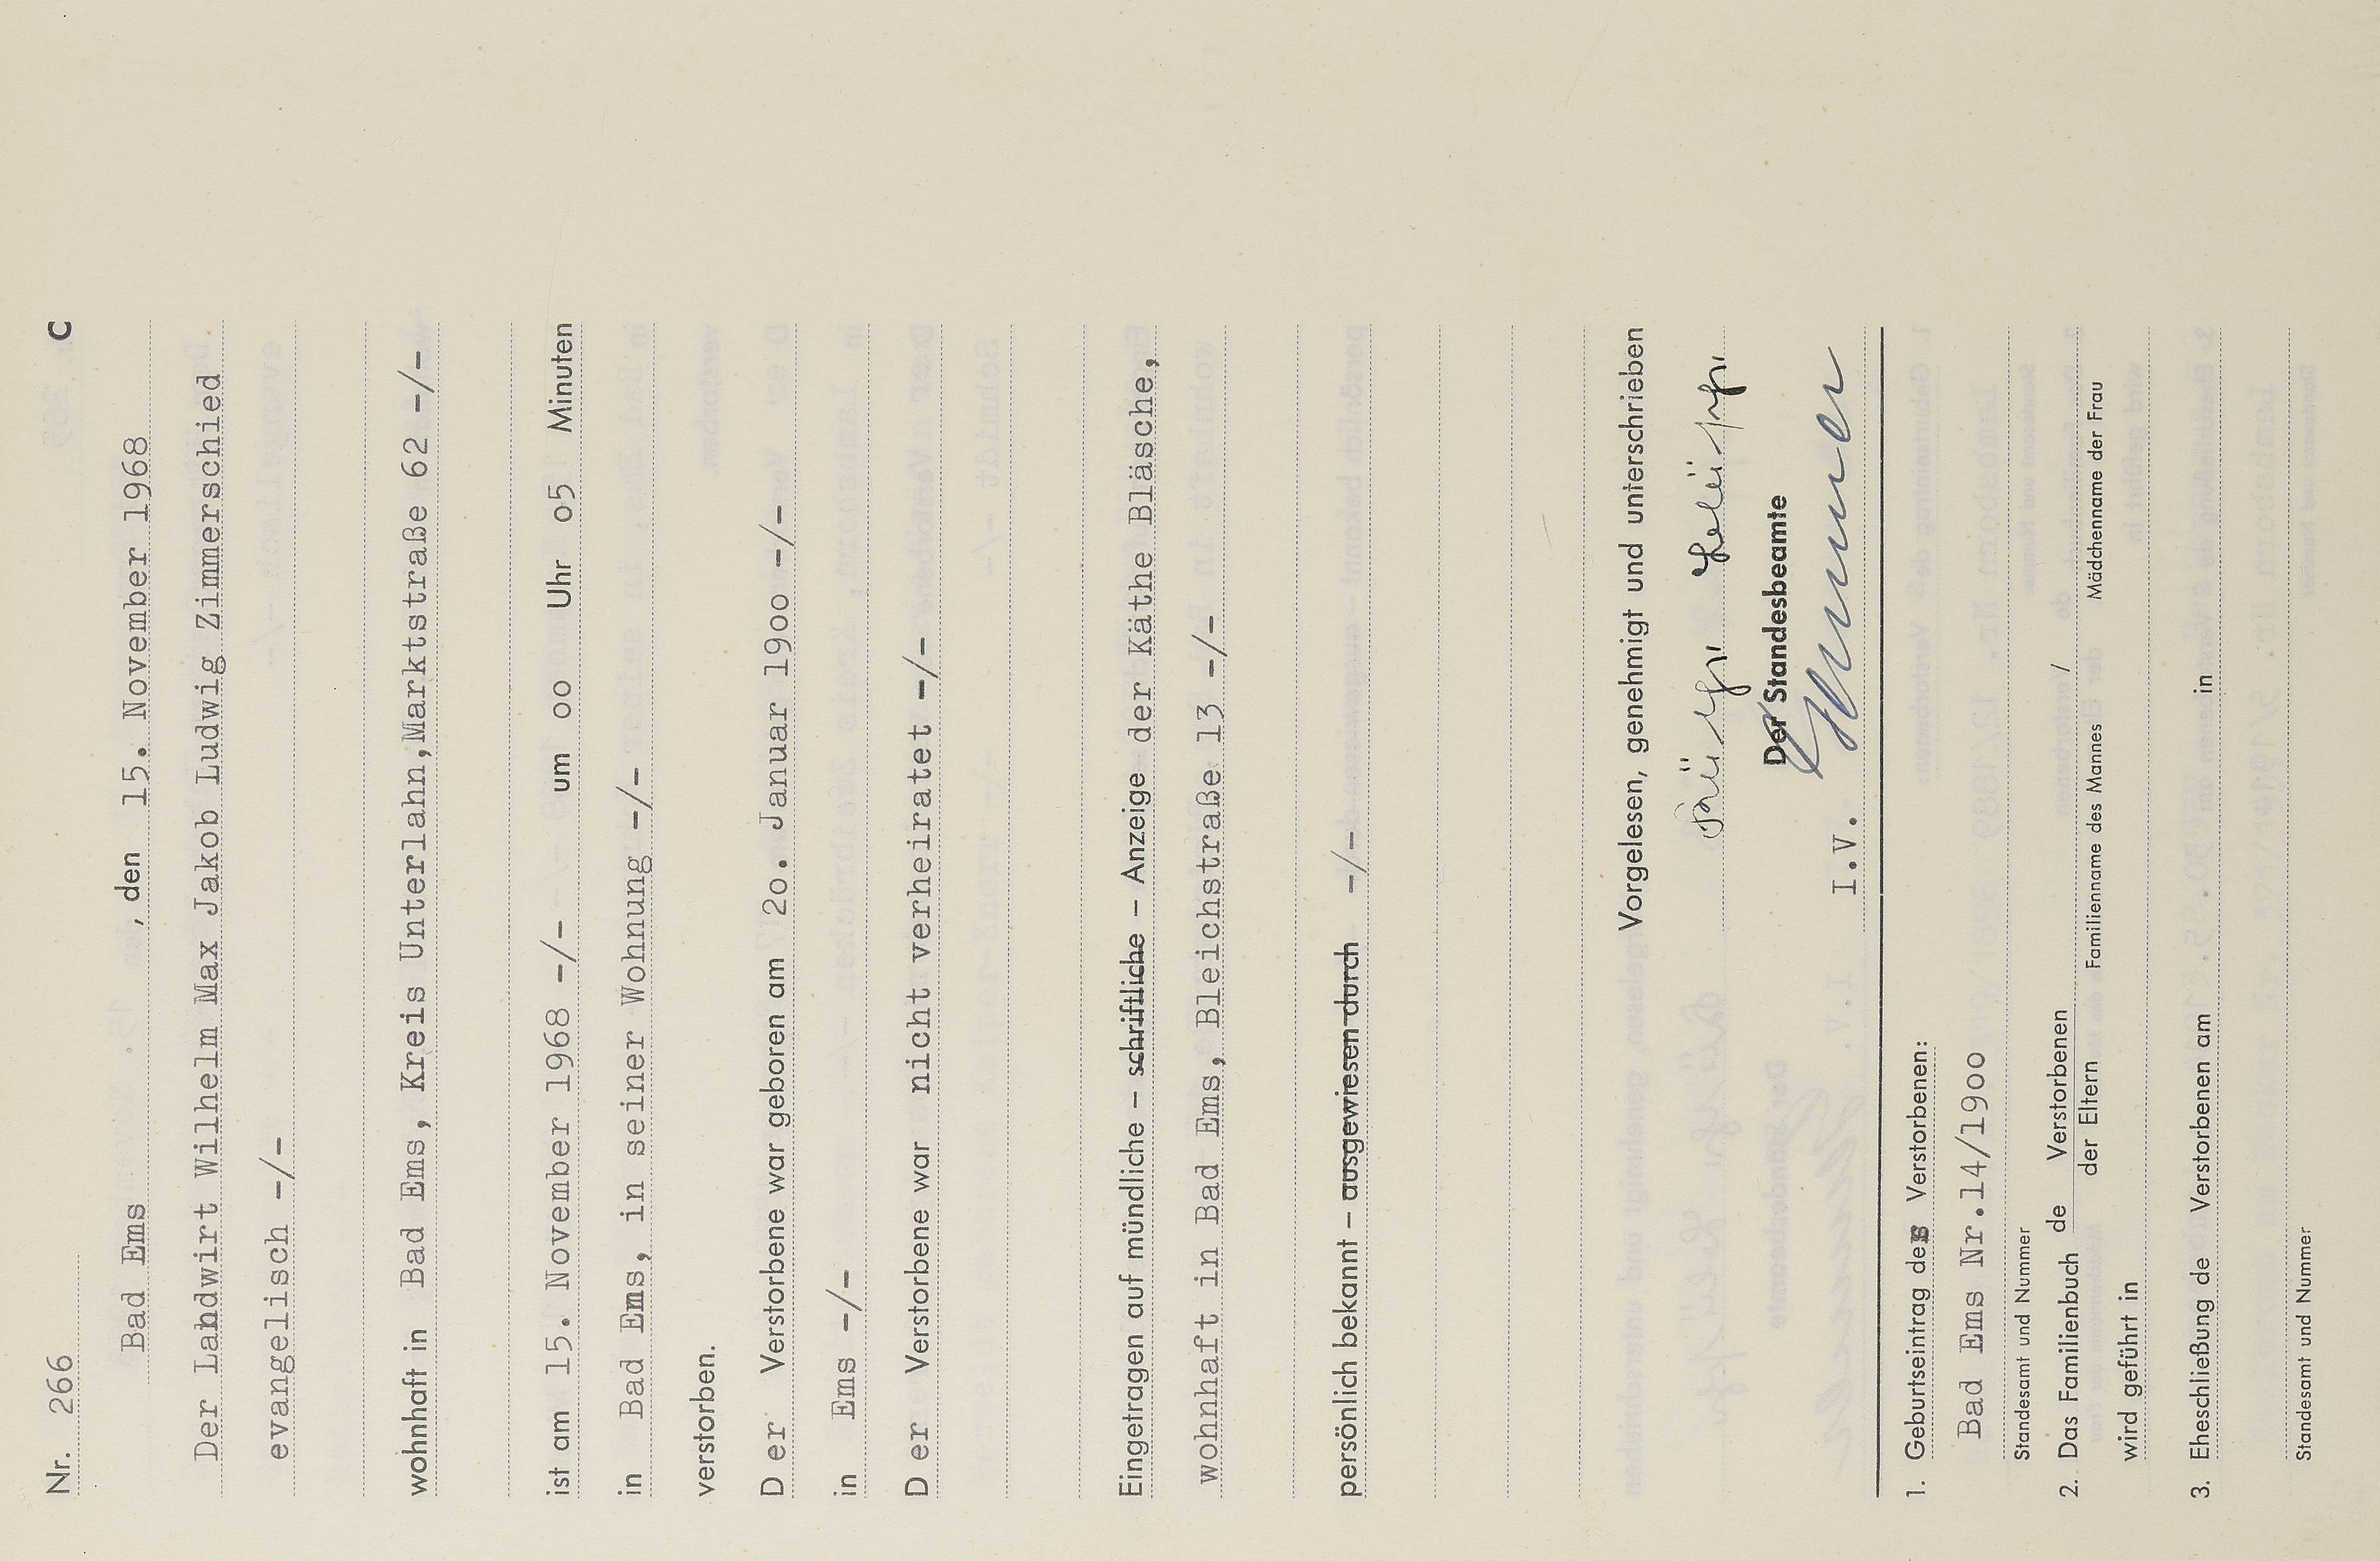 Nr. 266 C
Bad Ems , den 15. November 1968
Der Landwirt Wilhelm Max Jakob Ludwig Zimmerschied
evangelisch -/-
wohnhaft in Bad Ems, Kreis Unterlahn,Marktstraße 62 -/-
ist am 15. November 1968 -/- um oo Uhr o5 Minuten
in Bad Ems, in seiner Wohnung -/-
verstorben.
D er Verstorbene war geboren am 2o. Januar 19oo -/-
in Ems -/-
D er Verstorbene war nicht verheiratet -/-
Eingetragen auf mündliche – schriftliche – Anzeige der Käthe Bläsche,
wohnhaft in Bad Ems, Bleichstraße 13 -/-
persönlich bekannt – ausgewiesen durch -/-
Vorgelesen, genehmigt und unterschrieben
Der Standesbeamte
I.V.
1. Geburtseintrag des Verstorbenen:
Bad Ems Nr.14/19oo
Standesamt und Nummer
2. Das Familienbuch de Verstorbenen /
der Eltern Familienname des Mannes Mädchenname der Frau
wird geführt in
3. Eheschließung de Verstorbenen am in
Standesamt und Nummer